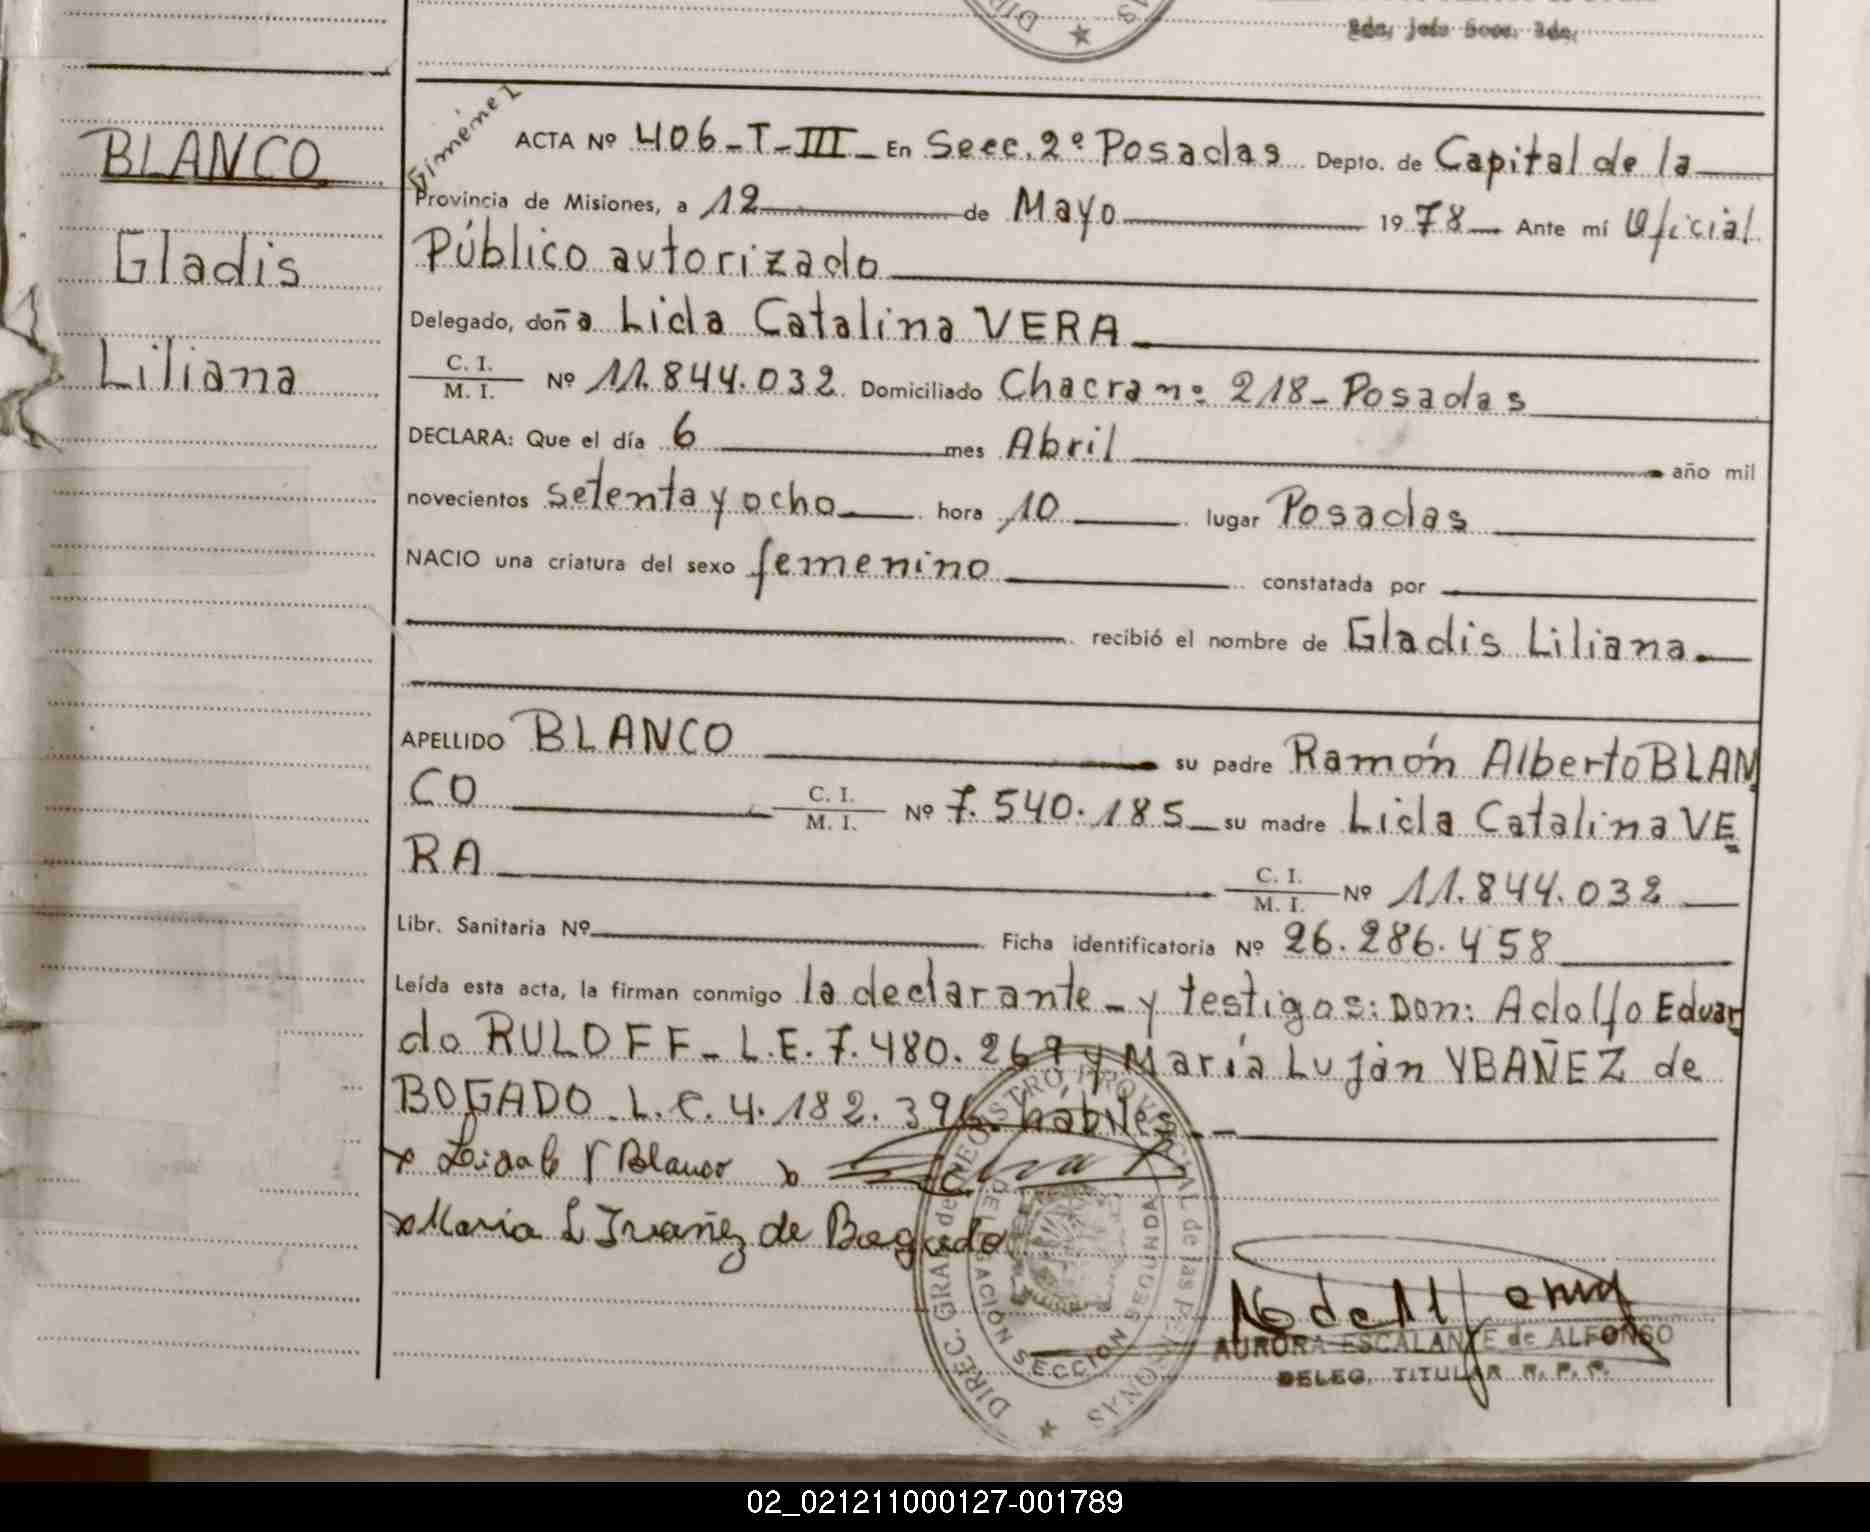 Gimenez
BLANCO
Gladis
Liliana
ACTA Nº 406-T-III- En Secc. 2º Posadas Depto. de Capital de la
Provincia de Misiones, a 12 de Mayo 1978 Ante mí Oficial
Público autorizado
Delegado, doña Lida Catalina VERA
C. I. / M. I. Nº 11.844.032. Domiciliado Chacra nº 218-Posadas
DECLARA: Que el día 6 mes Abril año mil
novecientos setenta y ocho hora 10 lugar Posadas
NACIO una criatura del sexo femenino constatada por
recibió el nombre de Gladis Liliana
APELLIDO BLANCO su padre Ramón Alberto BLAN
CO C. I. / M. I. Nº 7.540.185 su madre Lida Catalina VE
RA C. I. / M. I. Nº 11.844.032
Libr. Sanitaria Nº Ficha identificatoria Nº 26.286.458
Leída esta acta, la firman conmigo la declarante - y testigos: Don: Adolfo Eduar
do RULOFF - L.E. 7.480.269 y María Luján YBAÑEZ de
BOGADO - L.C. 4.182.396. hábiles
Blanco
Maria L Ivañez de Bogado
DIREC. GRAL de REGISTRO PROVINCIAL de las PERSONAS
DELEGACION SECCION SEGUNDA
AURORA ESCALANTE de ALFONSO
DELEG. TITULAR R. P. P.
02_021211000127-001789